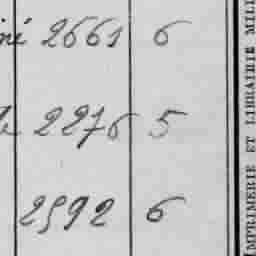 né 2661 6
2276 5
2592 6
IMPRIMERIE ET LIBRAIRIE MILI